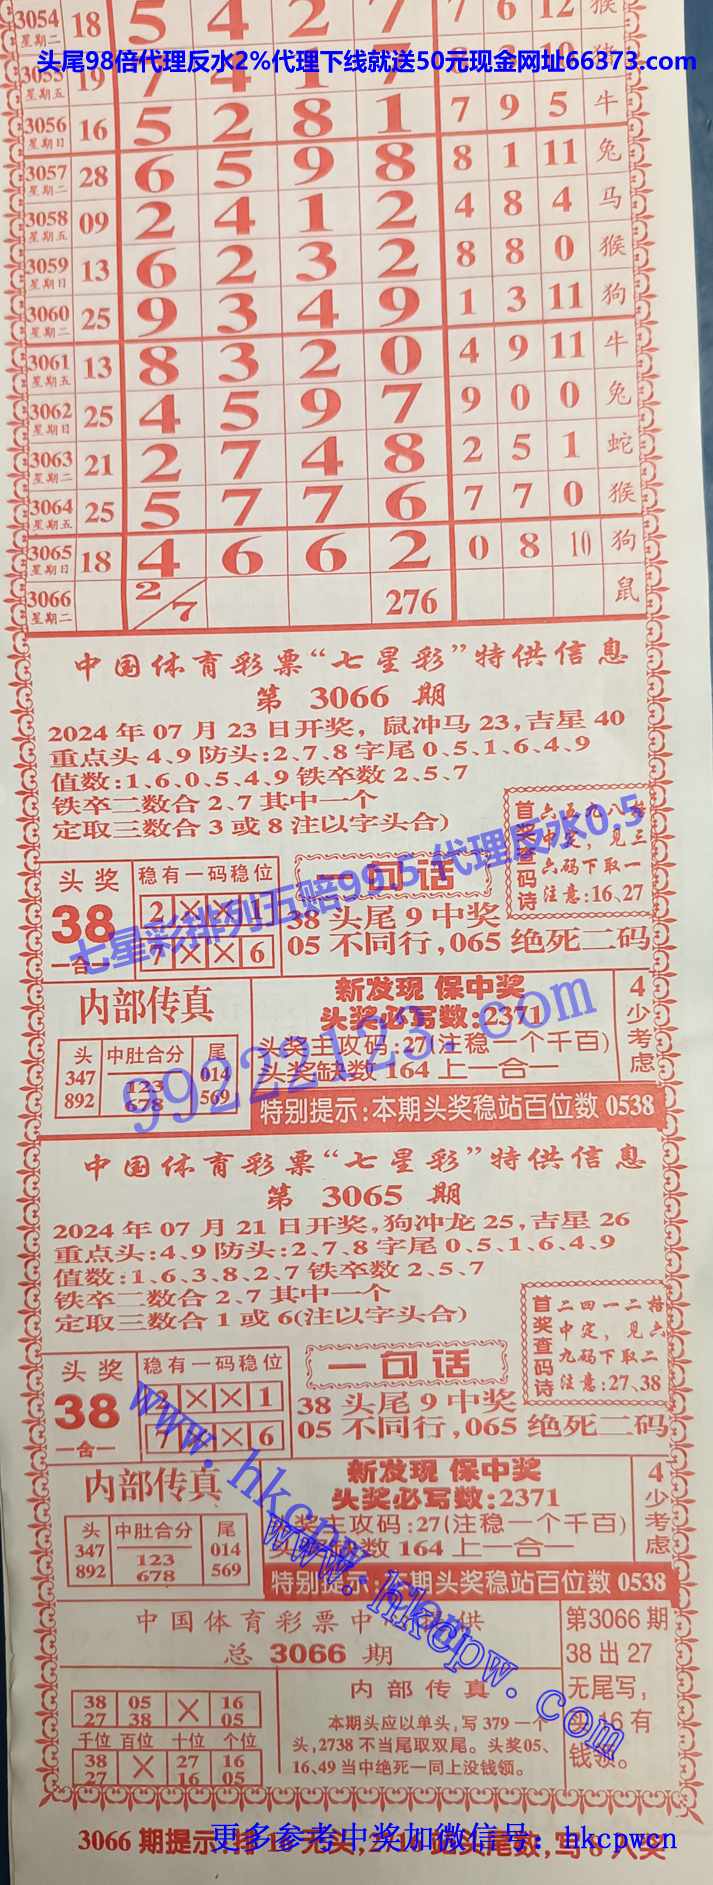 3054 星期二 18 5 4 2 7 7 6 12 猴
头尾98倍代理反水2%代理下线就送50元现金网址66373.com
3055 星期五 19 7 4 1 7 8 3 10 猪
3056 星期日 16 5 2 8 1 7 9 5 牛
3057 星期二 28 6 5 9 8 8 1 11 兔
3058 星期五 09 2 4 1 2 4 8 4 马
3059 星期日 13 6 2 3 2 8 8 0 猴
3060 星期二 25 9 3 4 9 1 3 11 狗
3061 星期五 13 8 3 2 0 4 9 11 牛
3062 星期日 25 4 5 9 7 9 0 0 兔
3063 星期二 21 2 7 4 8 2 5 1 蛇
3064 星期五 25 5 7 7 6 7 7 0 猴
3065 星期日 18 4 6 6 2 0 8 10 狗
3066 星期二 2/7 276 鼠
中国体育彩票“七星彩”特供信息
第 3066 期
2024 年 07 月 23 日开奖，鼠冲马 23,吉星 40
重点头 4、9 防头:2、7、8 字尾 0、5、1、6、4、9
值数:1、6、0、5、4、9 铁卒数 2、5、7
铁卒二数合 2、7 其中一个
定取三数合 3 或 8 注以字头合)
首奖查码诗
六五九八
中定，见三
六码下取一
注意:16、27
七星彩排列五赔99.5 代理反水0.5
头奖
38
一合一
稳有一码稳位
2 × × 1
7 × × 6
一句话
38 头尾 9 中奖
05 不同行,065 绝死二码
内部传真
头 中肚合分 尾
347 123 014
892 678 569
新发现 保中奖
头奖必写数:2371
头奖主攻码:27(注稳一个千百)
头奖缺数 164 上一合一
4少考虑
特别提示:本期头奖稳站百位数 0538
99222123.com
中国体育彩票“七星彩”特供信息
第 3065 期
2024 年 07 月 21 日开奖,狗冲龙 25,吉星 26
重点头:4、9 防头:2、7、8 字尾 0、5、1、6、4、9
值数:1、6、3、8、2、7 铁卒数 2、5、7
铁卒二数合 2、7 其中一个
定取三数合 1 或 6(注以字头合)
首奖查码诗
二四一二
中定，见六
九码下取二
注意:27、38
头奖
38
一合一
稳有一码稳位
2 × × 1
7 × 6
一句话
38 头尾 9 中奖
05 不同行,065 绝死二码
内部传真
头 中肚合分 尾
347 123 014
892 678 569
新发现 保中奖
头奖必写数:2371
奖主攻码:27(注稳一个千百)
数 164 上一合一
4少考虑
特别提示:本期头奖稳站百位数 0538
www.hkcpw.com
www.hkcpw.com
中国体育彩票中 供
总 3066 期
38 05 × 16
27 38 05
千位 百位 十位 个位
38 × 27 16
27 16 05
内部传真
本期头应以单头,写 379 一个
头,2738 不当尾取双尾。头奖05、
16、49 当中绝死一同上没钱领。
第3066 期
38 出 27
无尾写，
头 16 有
钱领。
3066 期提示:
更多参考中奖加微信号：hkcpwcn